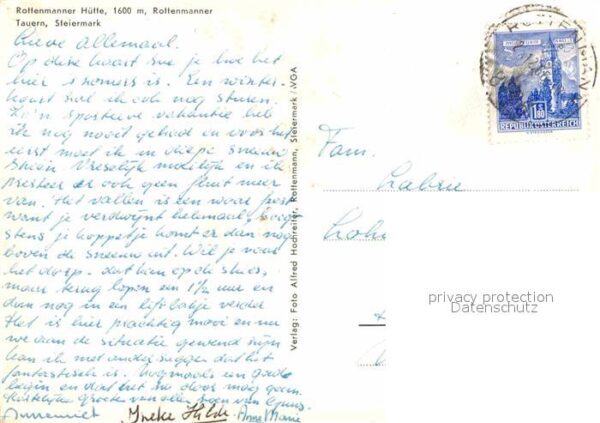 Rottenmanner Hütte, 1600 m, Rottenmanner
Tauern, Steiermark
Lieve allemaal.
Op deze kaart zie je hoe het
hier 's zomers is. Een winter-
kaart zal ik ook nog sturen.
Zo'n sportieve vakantie heb
ik nog nooit gehad en voor het
eerst moet ik in diepe sneeuw
skiën. Vreselijk moeilijk en ik
presteer er ook geen fluit meer
van. Het vallen is een waar feest
want je verdwijnt helemaal, hoog
stens je koppetje komt er dan nog
boven de sneeuw uit. Wil je naar
het dorp. dat kan op de skies,
maar terug lopen en 1½ uur en
dan nog in een liftbakje verder
Het is hier prachtig mooi en nu
we aan de situatie gewend zijn
kan ik niet anders zeggen dat het
fantastisch is. Nogmaals een goed
begin en dat het zo door mag gaan.
Hartelijke groeten van allen
Annemiet Ineke Hilde Anne Marie
Verlag: Foto Alfred Hochreiter, Rottenmann, Steiermark /VGA
1.80
REPUBLIK ÖSTERREICH
Fam.
privacy protection
Datenschutz